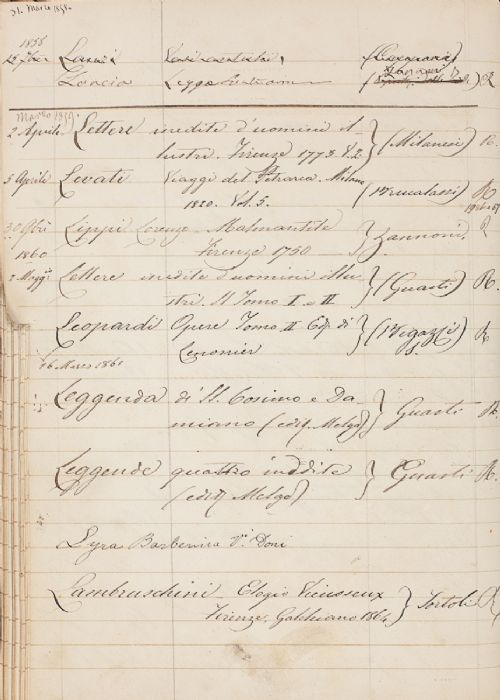 31. Marzo 1858.
1858
Lami
Lancia Legge
Marzo 1859.
2 Aprile Lettere inedite d'uomini il-
lustri. Firenze 1773. V. 2. (Milanesi) R.
5 Aprile Levati Viaggi del Petrarca. Milano
1820. Vol. 5. R
30 Lippi Lorenzo Malmantile
Firenze 1750 Zannoni.
1860
2 Magg. Lettere inedite d'uomini illu
stri. Tomo I. e II (Guasti) R.
Leopardi Opere Tomo II Ediz. di
Lemonier R
16 Marzo 1861
Leggenda di S. Cosimo e Da
miano (ediz. Melga) Guasti R.
Leggende quattro inedite
(ediz. Melga) Guasti R.
Lyra Barberina V. Doni
Lambruschini Elogio Vieusseux
Firenze, Galileiano 1864 Tortoli R